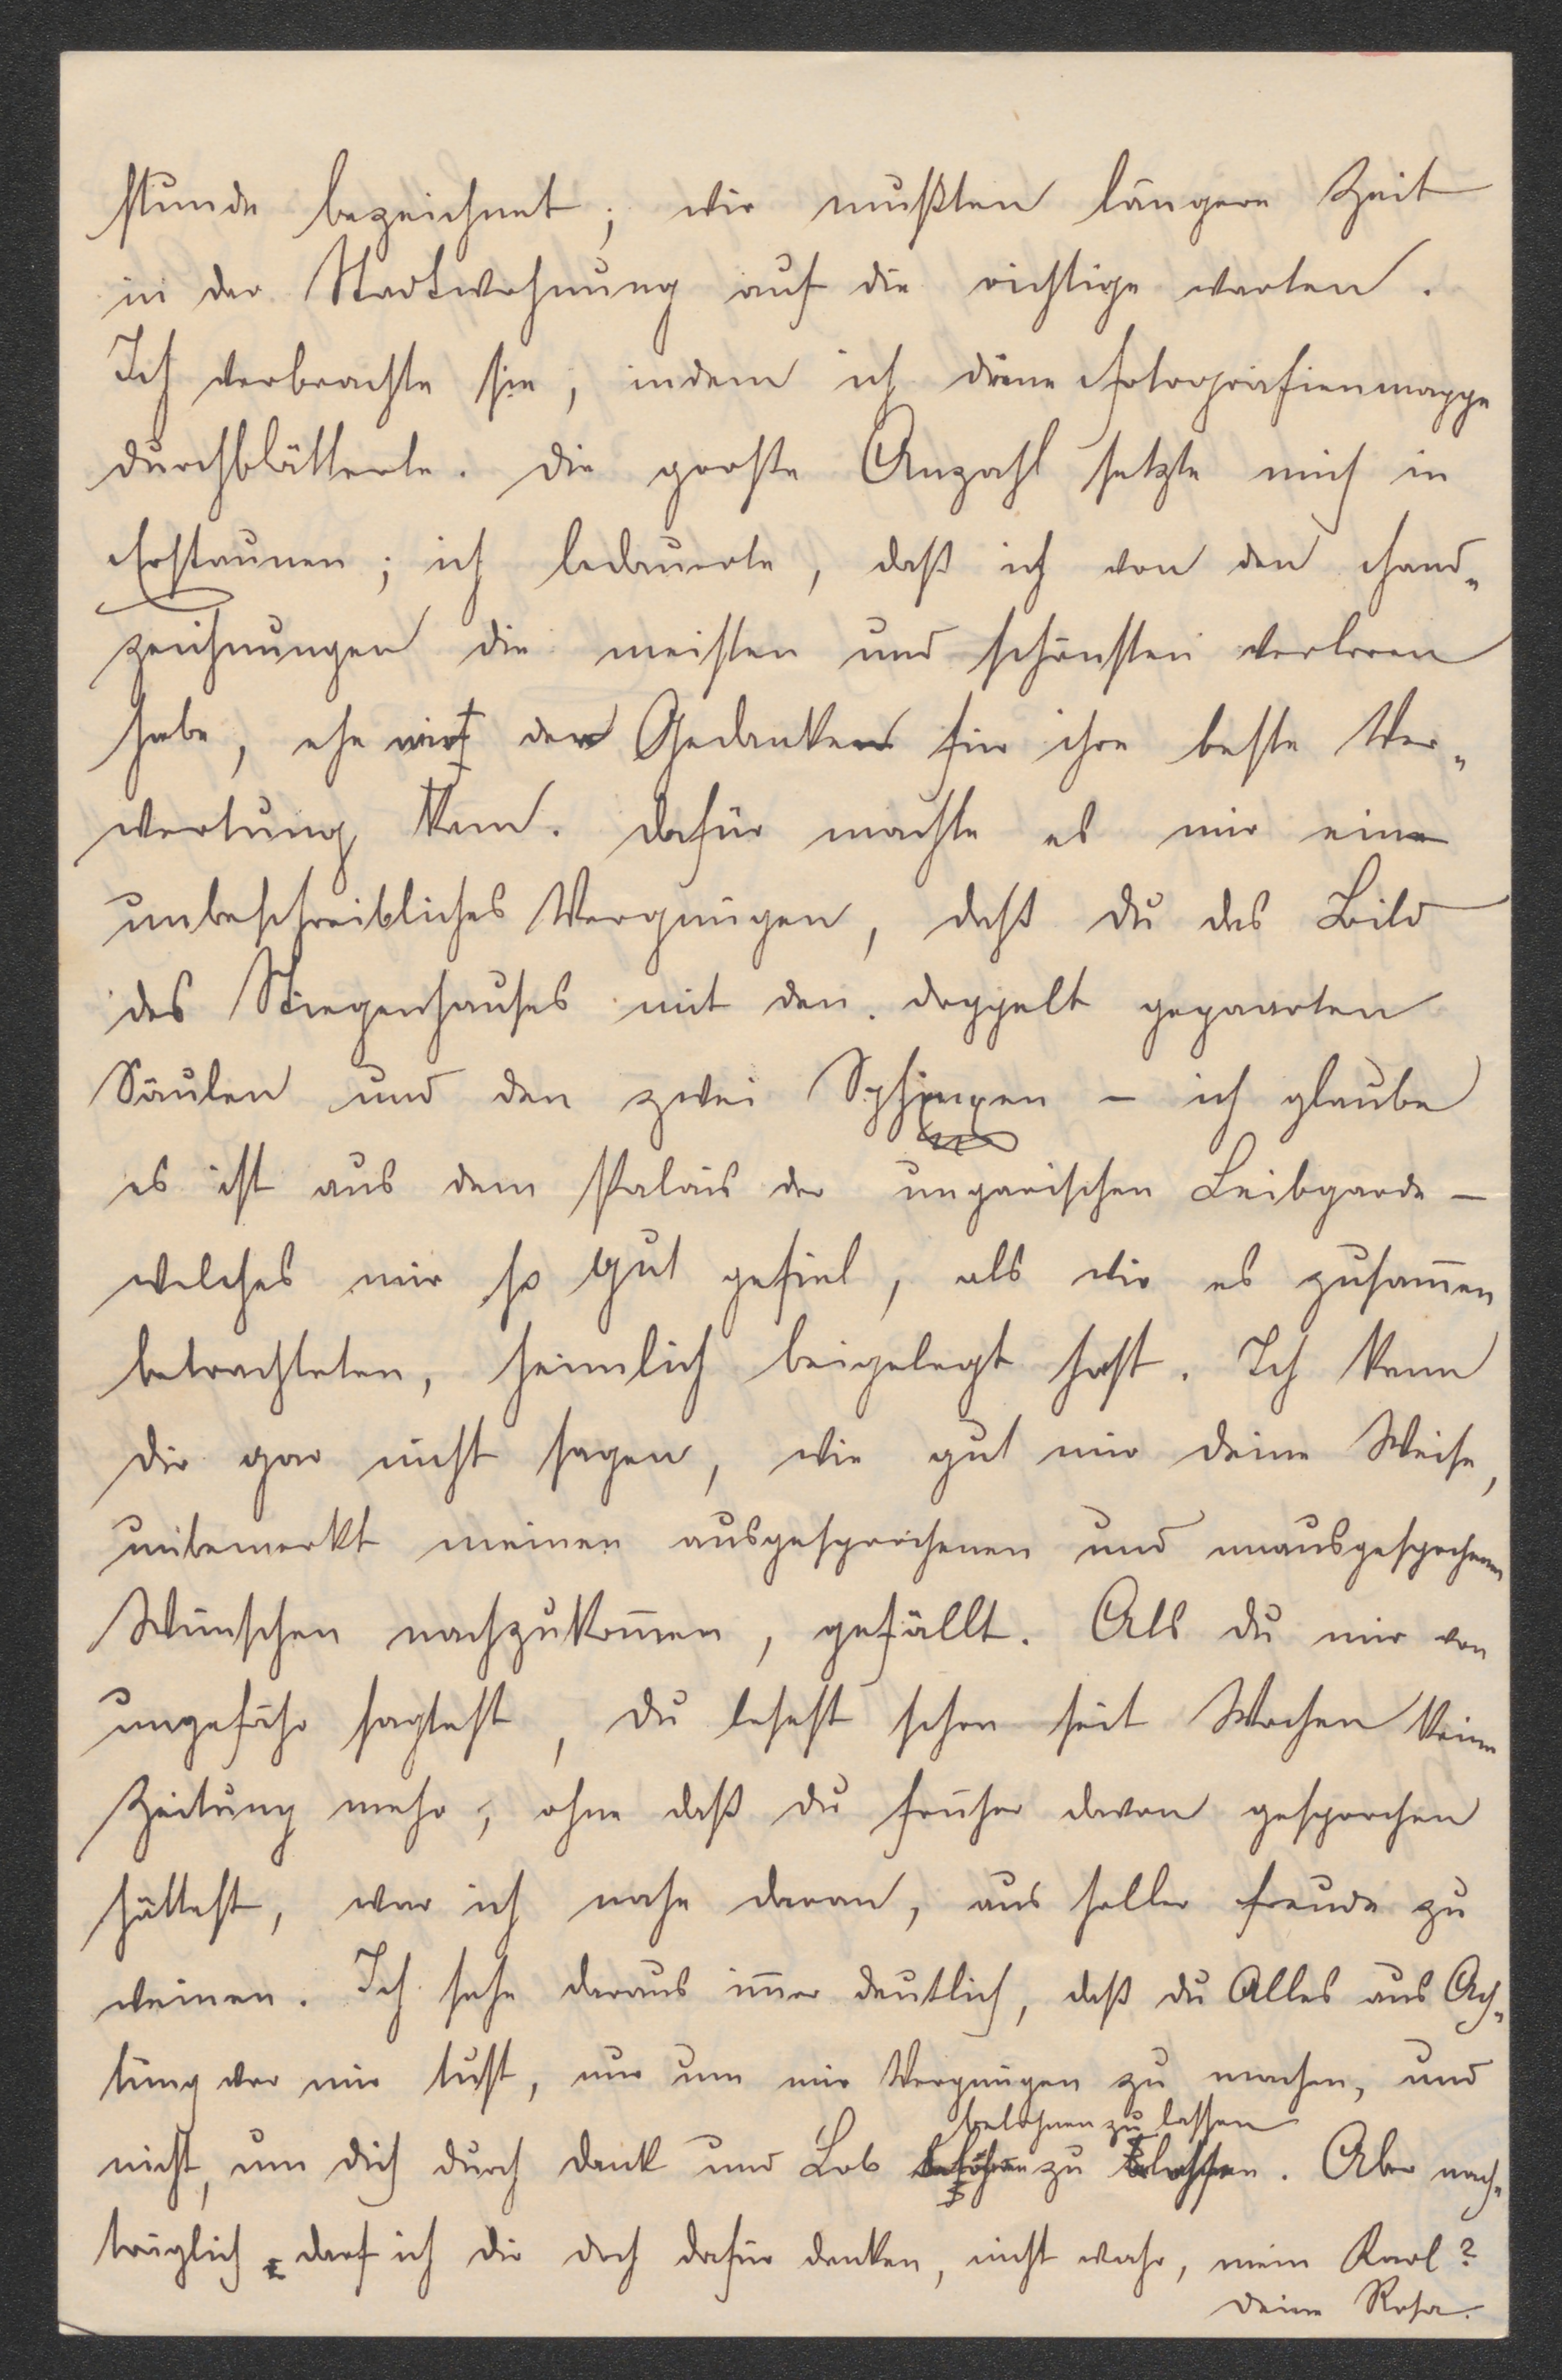 stunde bezeichnet; wir mußten längere Zeit
in der Stadtwohnung auf die richtige warten.
Ich verbrachte sie, indem ich deine Fotografienmappe
durchblätterte. Die große Anzahl setzte mich in
Erstaunen; ich bedauerte, daß ich von den Hand-
zeichnungen die meisten und schönsten verloren
habe, ehe mir der Gedanke für ihre beste Ver-
wertung kam. Dafür machte es mir ein
unbeschreibliches Vergnügen, daß du das Bild
des Stiegenhauses mit den doppelt gepaarten
Säulen und den zwei Sphinxen – ich glaube
es ist aus dem Palais der ungarischen Leibgarde –
welches mir so gut gefiel, als wir es zusam̅en
betrachteten, heimlich beigelegt hast. Ich kann
dir gar nicht sagen, wie gut mir deine Weise,
unbemerkt meinen ausgesprochenen und unausgesprochenen
Wünschen nachzukom̅en, gefällt. Als du mir von
ungefähr sagtest, du lesest schon seit Wochen keine
Zeitung mehr, ohne daß du früher davon gesprochen
hättest, war ich nahe daran, aus heller Freude zu
weinen. Ich sehe daraus im̅er deutlich, daß du Alles aus Ach-
tung vor mir tust, nur um mir Vergnügen zu machen, und
belohnen zu lassen
nicht, um dich durch Dank und Lob zu. Aber nach-
träglich darf ich dir doch dafür danken, nicht wahr, mein Karl?
Deine Rosa.